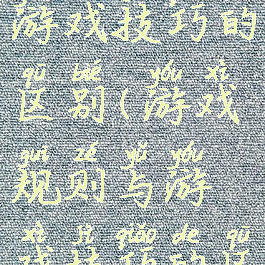 游戏技巧的
qū bié yóu xì
区别(游戏
guī zé yǔ yóu
规则与游
xì jì qiǎo de qū
戏技巧的区